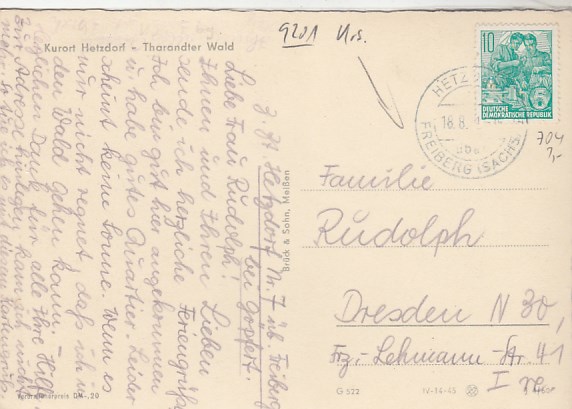 Kurort Hetzdorf - Tharandter Wald
9201 Urs.
10
DEUTSCHE
DEMOKRATISCHE REPUBLIK
HETZ
18.8.
FREIBERG (SACHS)
704
Z. Zt. Hetzdorf Nr. 7 üb. Freiberg
bei
Liebe Frau Rudolph!
Ihnen und Ihren Lieben
sende ich herzliche Feriengrüße
Ich bin gut hier angekommen
u. habe gutes Quartier. Leider
scheint keine Sonne. Wenn es
nur nicht regnet, daß ich in
den Wald gehen kann.
Herzlichen Dank für alle Ihre Hilfe
Adresse hinlegen kann ich nicht
mehr. So wie ich es mit diesem Kartengruß
Brück & Sohn, Meißen
Familie
Rudolph
Dresden N 30,
Frz.-Lehmann-Str. 41
I
Verbraucherpreis DM -,20
G 522
IV-14-45